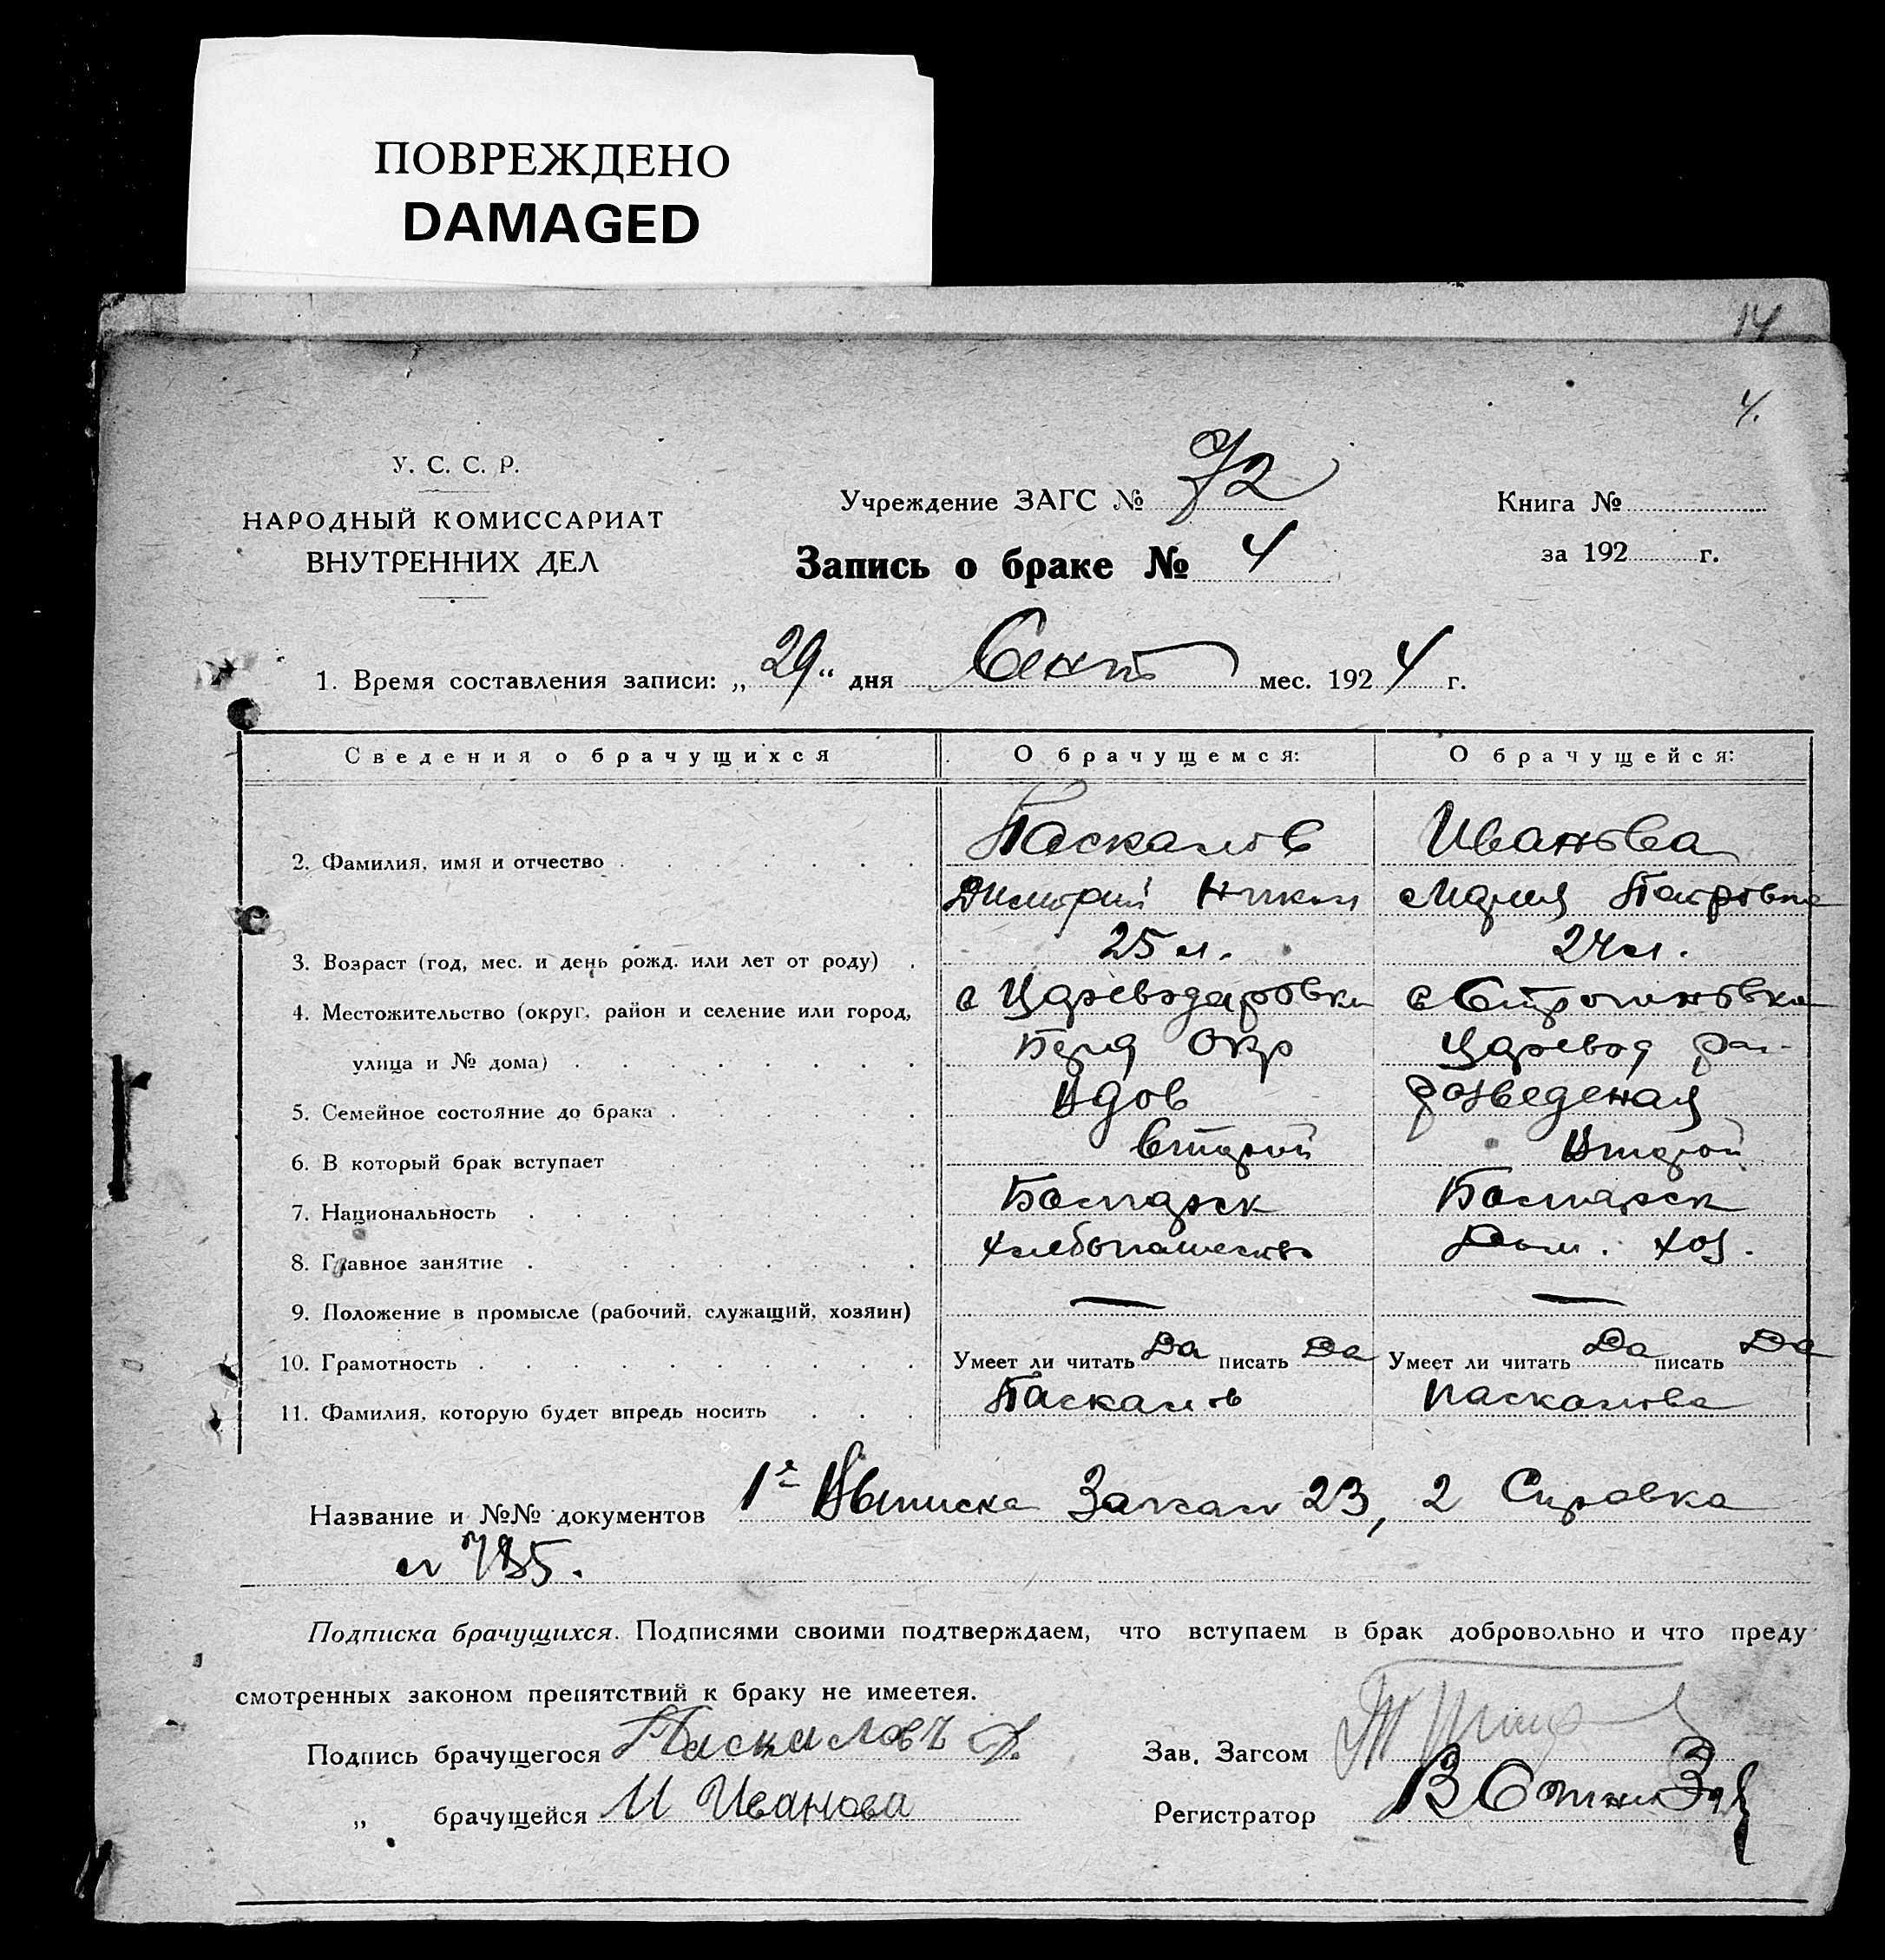 ПОВРЕЖДЕНО
DAMAGED
14
4.
У. С. С. Р.
НАРОДНЫЙ КОМИССАРИАТ
ВНУТРЕННИХ ДЕЛ
Учреждение ЗАГС № 72
Книга №
Запись о браке № 4
за 192 г.
1. Время составления записи: „29“ дня Сент мес. 1924 г.
Сведения о брачущихся О брачущемся: О брачущейся:
Паскалов Иванова
2. Фамилия, имя и отчество
Димитрий Никол Мария Петровна
3. Возраст (год, мес. и день рожд. или лет от роду) 25 л. 24 л.
4. Местожительство (округ, район и селение или город, с Цареводаровки с Строгоновка
улица и № дома) Берд Окр Царевод рай-
5. Семейное состояние до брака Вдов розведеная
6. В который брак вступает второй Второй
7. Национальность Болгарск Болгарск
8. Главное занятие хлебопашество Дом. хоз.
9. Положение в промысле (рабочий, служащий, хозяин) — —
10. Грамотность Умеет ли читать Да писать Да Умеет ли читать Да писать Да
11. Фамилия, которую будет впредь носить Паскалов Паскалова
Название и №№ документов 1е Выписка 23, 2 Справка
Подписка брачущихся. Подписями своими подтверждаем, что вступаем в брак добровольно и что преду
смотренных законом препятствий к браку не имеется.
Подпись брачущегося Паскаловъ Д.
Зав. Загсом
„ брачущейся М Иванова
Регистратор